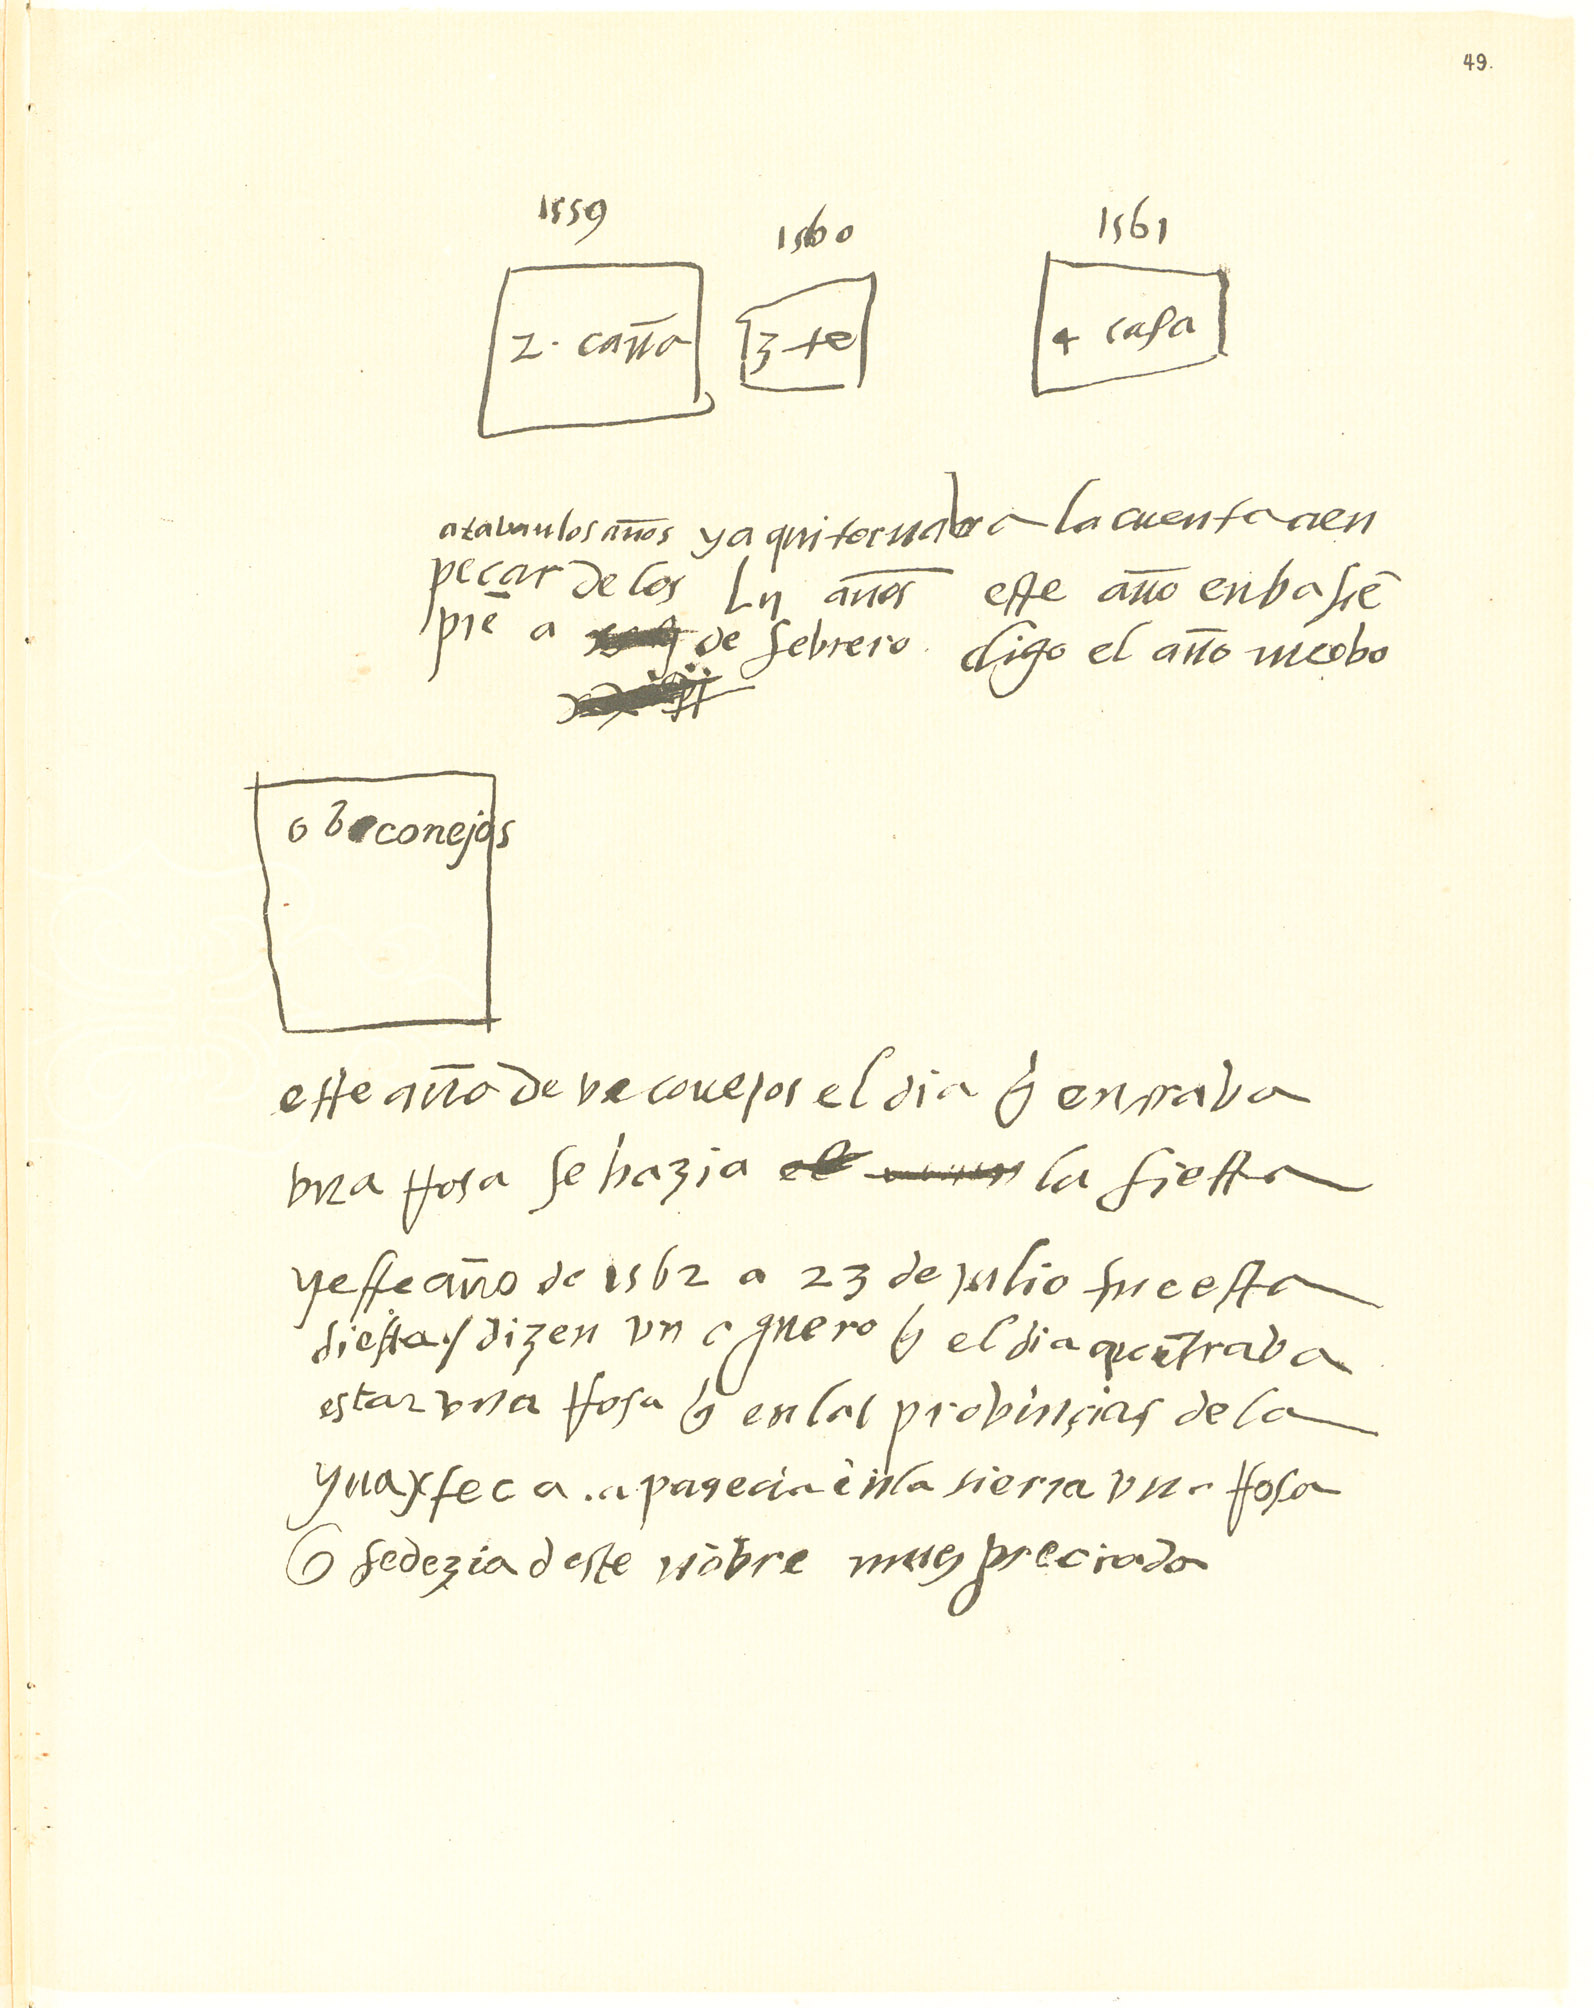 49.
1559
1560
1561
2. caña
3 te
4 casa
atavan los años y aqui tornava a la cuenta a en
peçar de los Lii años este año enba sie
pie a de febrero. digo el año nuebo
o be conejos
este año de ve conejos el dia q̃ entrava
una rrosa se hazia la fiesta
y este año de 1562 a 23 de julio fue esta
fiesta / dizen un aguero q̃ el dia que entrava
estar una rrosa q̃ en las probinçias de la
guaxteca. apareçia en la sierra una rrosa
q̃ se dezia deste nobre muy preciada